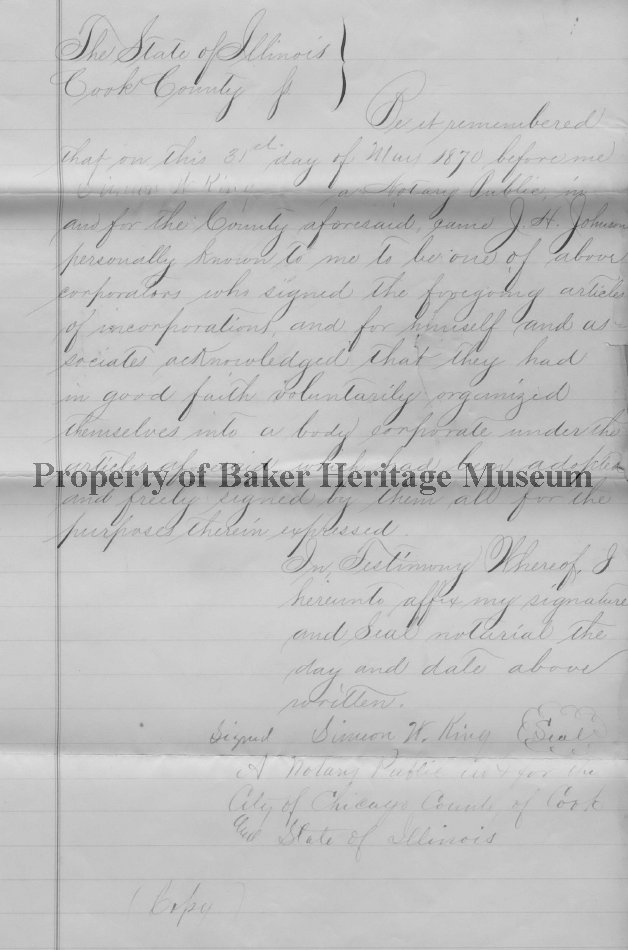 The State of Illinois
Cook County ss
Be it remembered
that on this 31st day of May 1870 before me
Simeon W King a Notary Public, in
and for the County aforesaid, came J. H. Johnson
personally known to me to be one of above
corporators who signed the foregoing articles
of incorporation, and for himself and as-
sociates acknowledged that they had
in good faith voluntarily organized
themselves into a body corporate under the
articles aforesaid, which had been adopted
Property of Baker Heritage Museum
and freely signed by them all for the
purposes therein expressed.
In Testimony Whereof, I
hereunto affix my signature
and Seal notarial the
day and date above
written.
Signed Simeon W. King (Seal)
A Notary Public in & for the
City of Chicago County of Cook
and State of Illinois
(Copy)